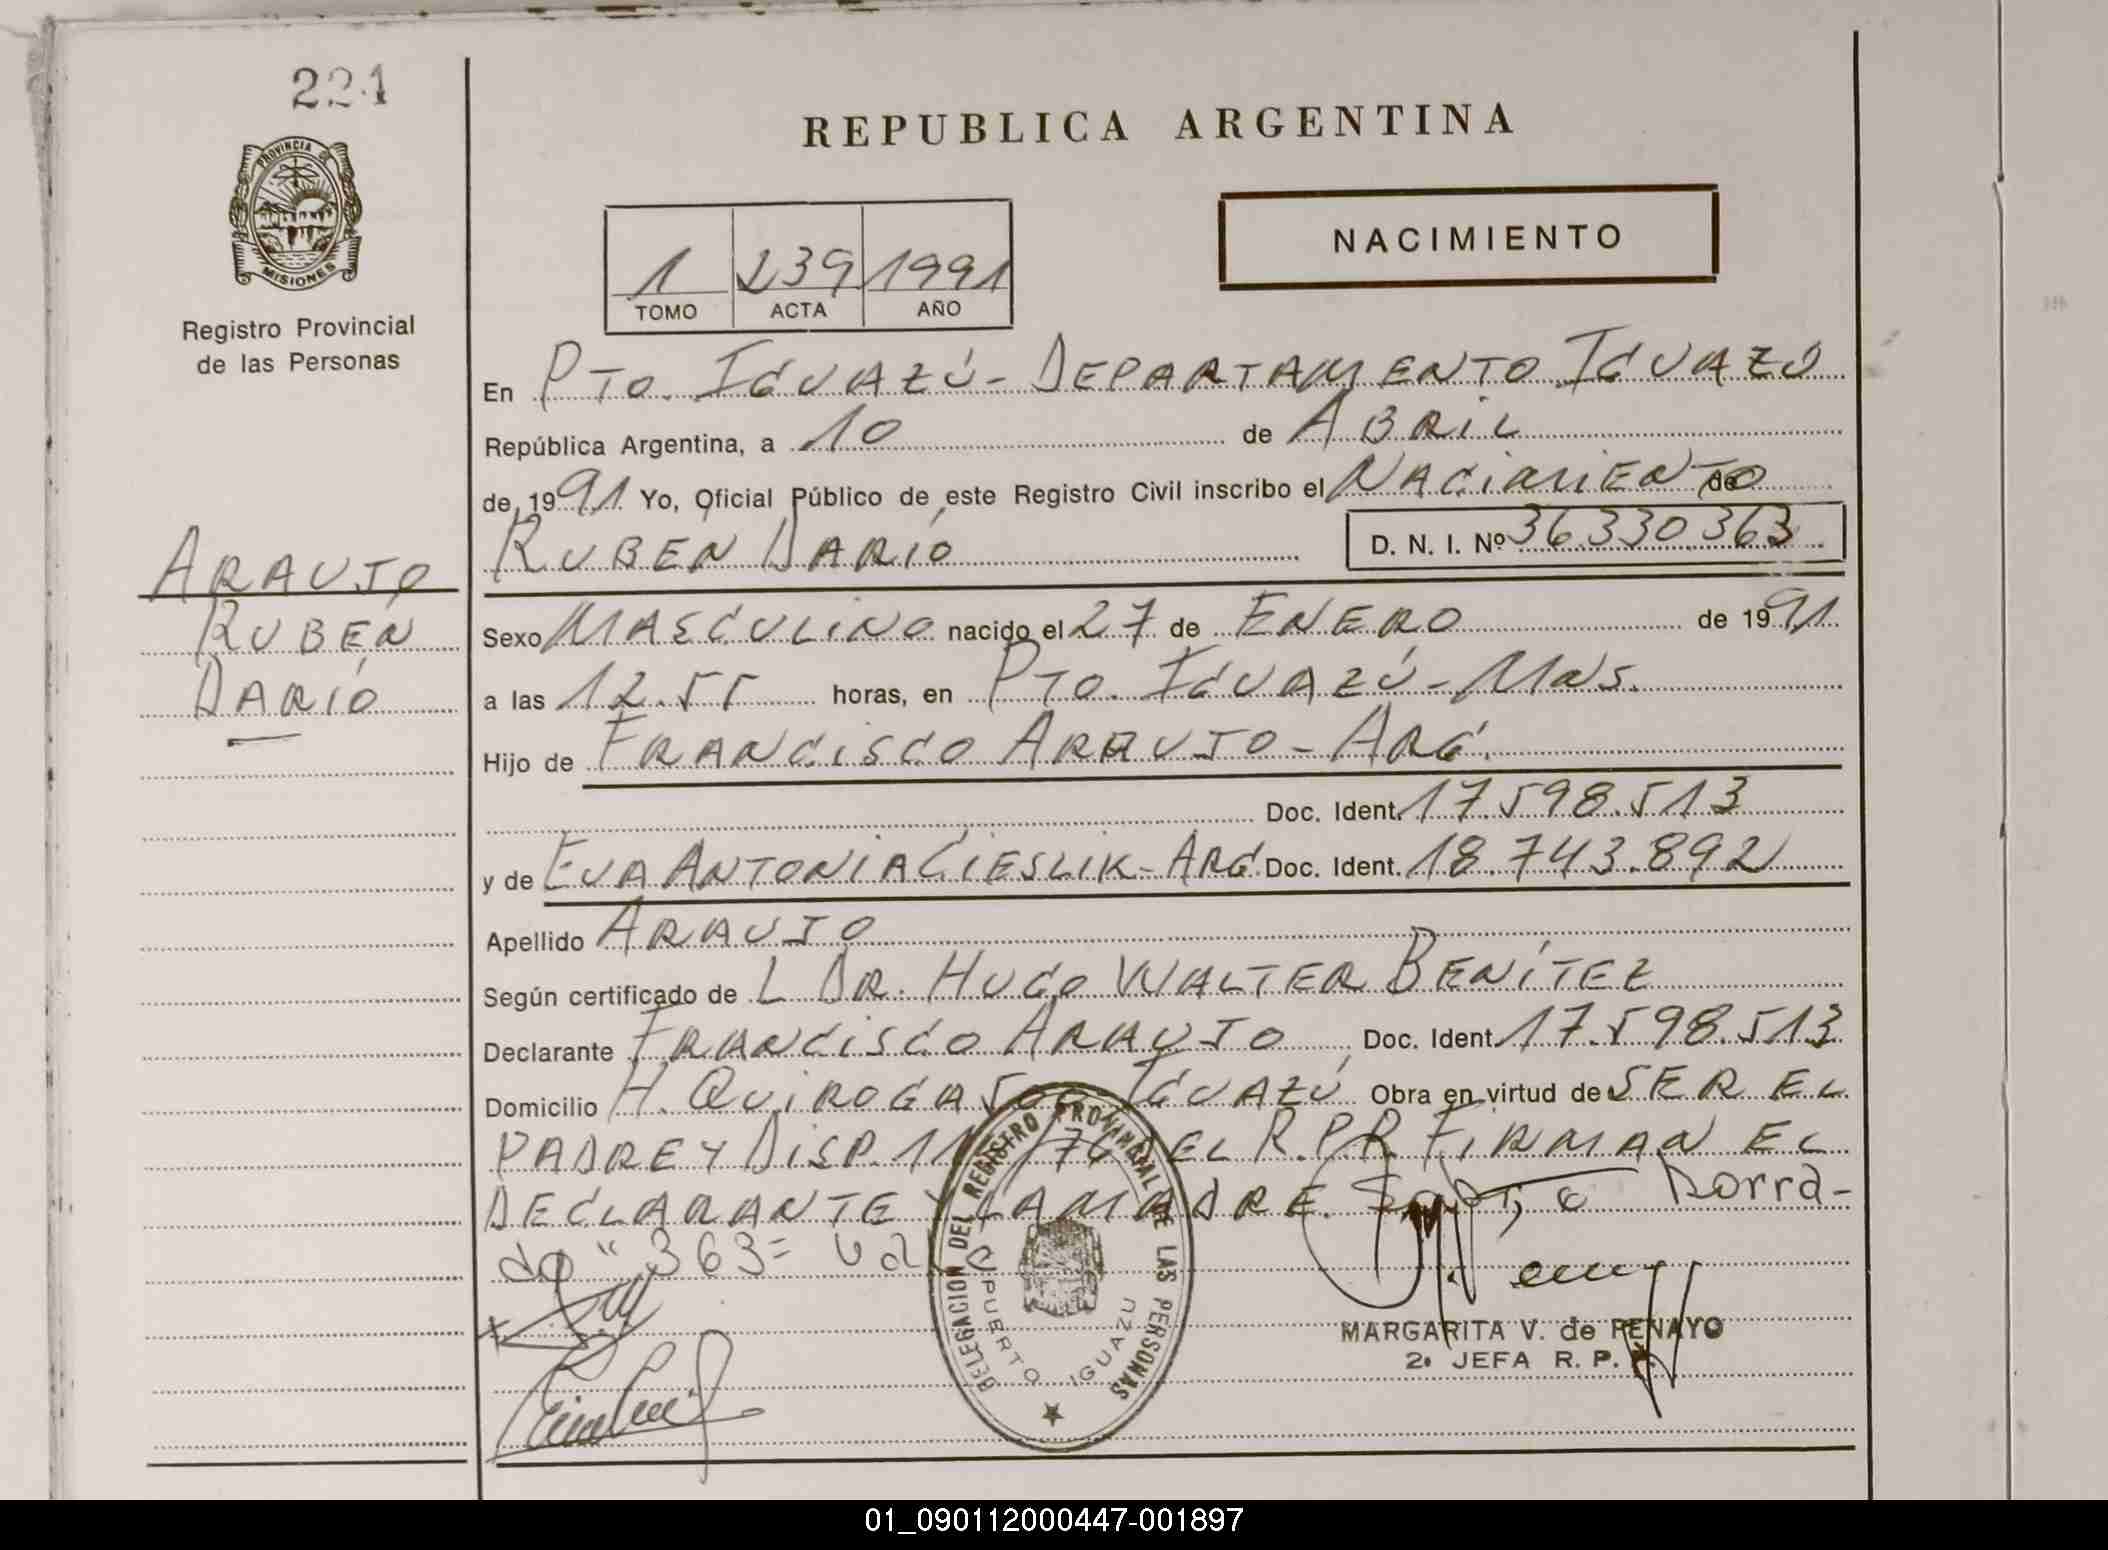 221
PROVINCIA DE
MISIONES
Registro Provincial
de las Personas
REPUBLICA ARGENTINA
NACIMIENTO
1 239 1991
TOMO ACTA AÑO
En PTO. IGUAZÚ - DEPARTAMENTO IGUAZÚ
República Argentina, a 10 de ABRIL
de 1991 Yo, Oficial Público de este Registro Civil inscribo el NACIMIENTO de
RUBÉN DARÍO D. N. I. Nº 36.330.363
ARAUJO
RUBÉN
DARÍO
Sexo MASCULINO nacido el 27 de ENERO de 1991
a las 12.55 horas, en PTO. IGUAZÚ - MNS.
Hijo de FRANCISCO ARAUJO - ARG.
Doc. Ident. 17.598.513
y de EVA ANTONIA CIESLIK - ARG. Doc. Ident. 18.743.892
Apellido ARAUJO
Según certificado de L DR. HUGO WALTER BENÍTEZ
Declarante FRANCISCO ARAUJO Doc. Ident. 17.598.513
Domicilio H. QUIROGA IGUAZÚ Obra en virtud de SER EL
PADRE Y DISP. 11 /76 DEL R.P.P. FIRMAN EL
DECLARANTE Y LA MADRE. Borra-
do "363= Val
DELEGACION DEL REGISTRO PROVINCIAL DE LAS PERSONAS
PUERTO IGUAZU
MARGARITA V. de PENAYO
2ª JEFA R. P. P.
01_090112000447-001897